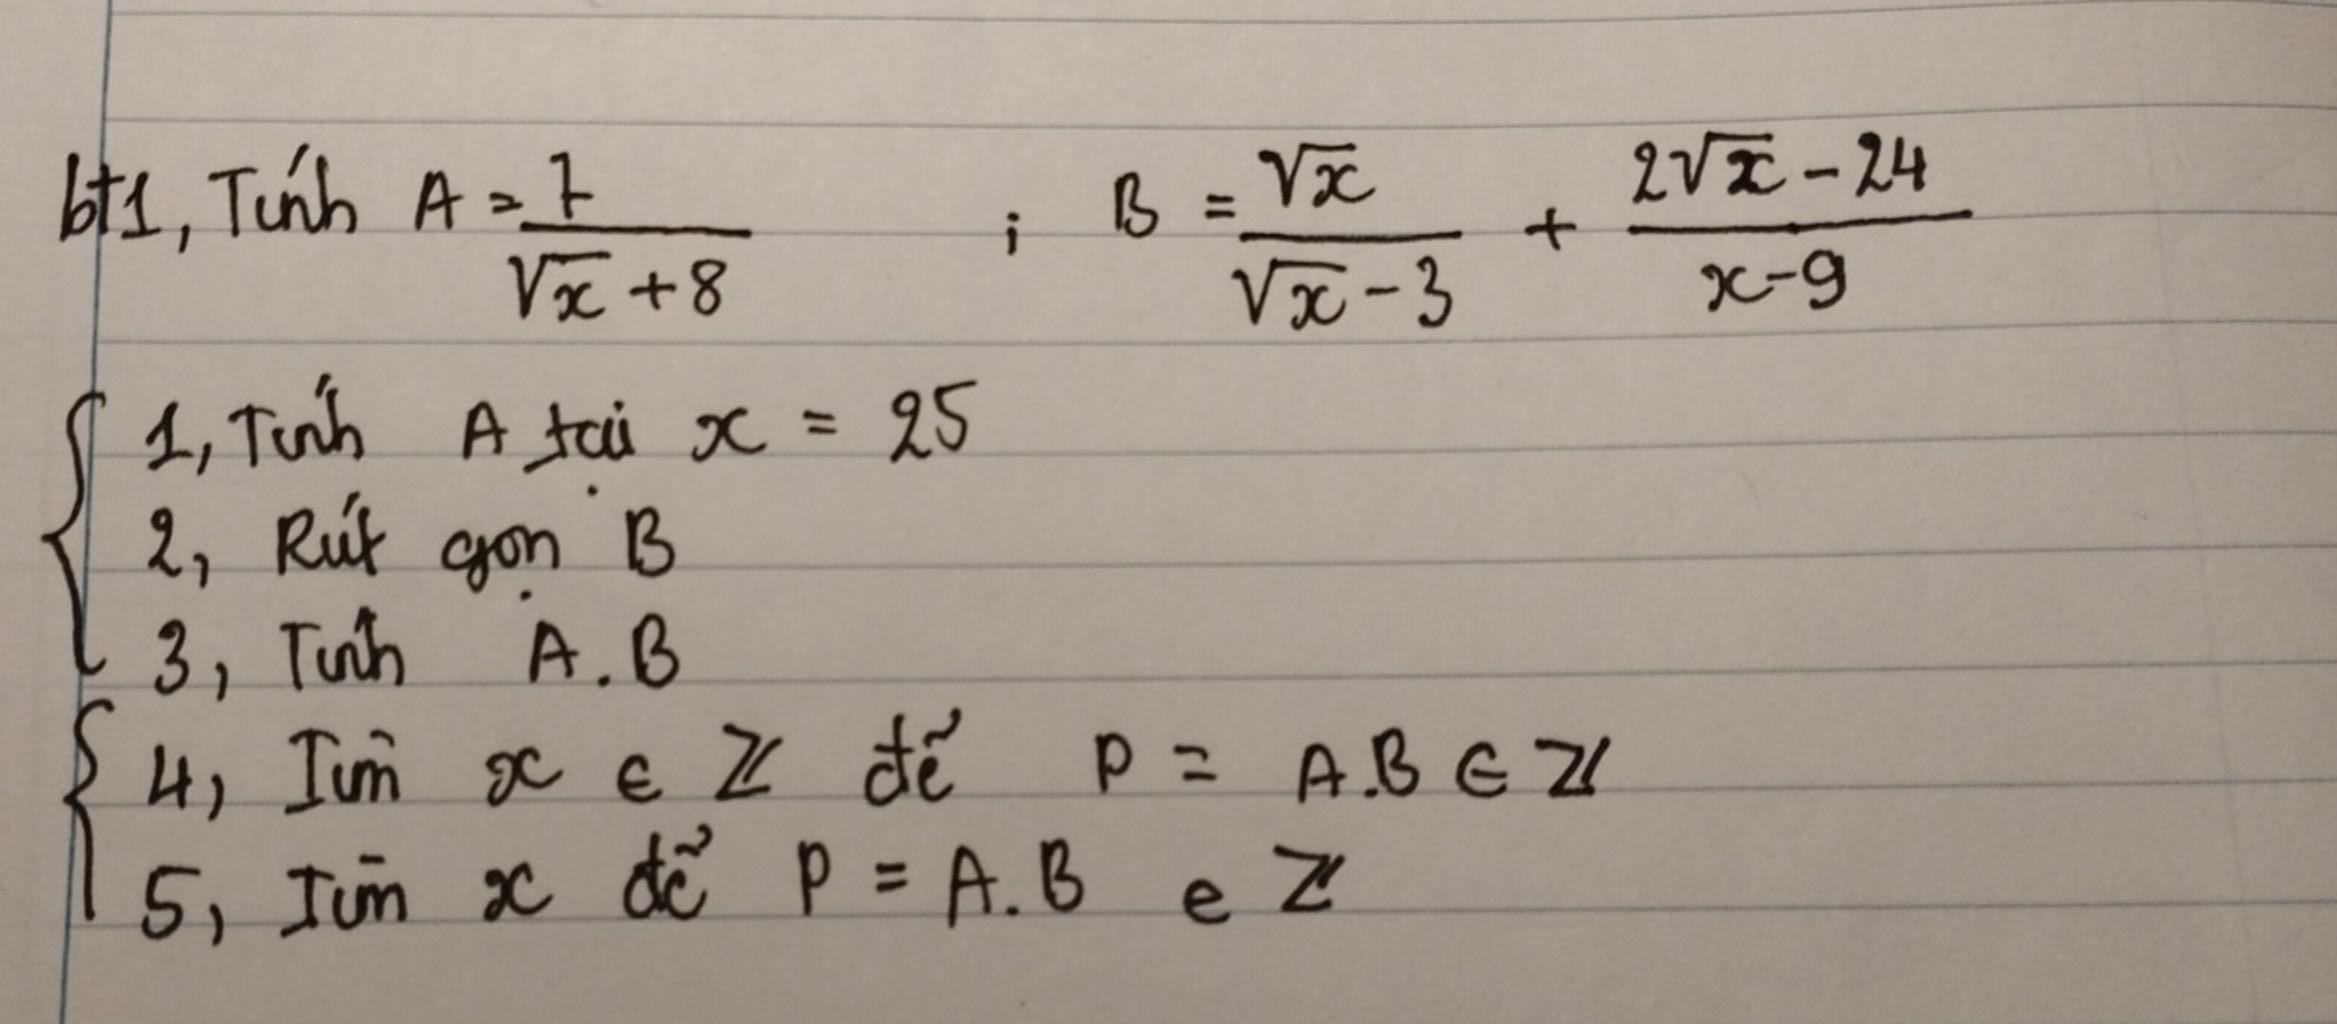 bt1, Tính A = 7/(√x + 8) ; B = √x/(√x - 3) + (2√x - 24)/(x - 9)
1, Tính A tại x = 25
2, Rút gọn B
3, Tính A.B
4, Tìm x ∈ Z để P = A.B ∈ Z
5, Tìm x để P = A.B ∈ Z